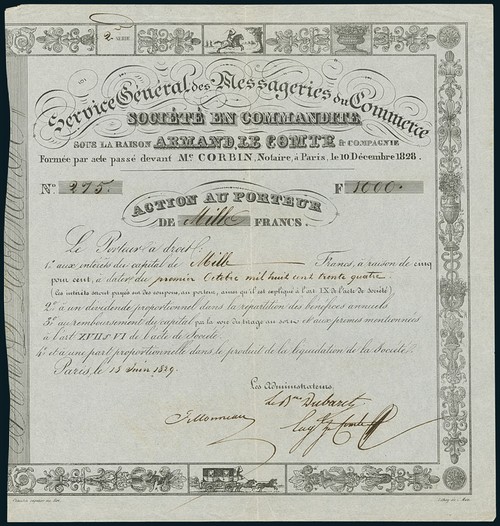 2e SÉRIE
Service Général des Messageries du Commerce
SOCIÉTÉ EN COMMANDITE
SOUS LA RAISON ARMAND LE COMTE & COMPAGNIE
Formée par acte passé devant Me. CORBIN, Notaire, à Paris, le 10 Décembre 1828.
No. 275. F 1000.
ACTION AU PORTEUR
DE Mille FRANCS.
Le Porteur a droit:
1o. aux intérêts du capital de Mille Francs, à raison de cinq
pour cent, à dater du premier Octobre mil huit cent trente quatre
(les intérêts seront payés sur des coupons au porteur, ainsi qu'il est expliqué à l'art. IX de l'acte de société)
2o. à un dividende proportionnel dans la répartition des bénéfices annuels
3o. au remboursement du capital par la voie du tirage au sort et aux primes mentionnées
à l'art XVII § VI de l'acte de Société.
4o. et à une part proportionnelle dans le produit de la liquidation de la Société.
Paris, le 15 Juin 1829.
Les Administrateurs,
Le Bon Dubaret